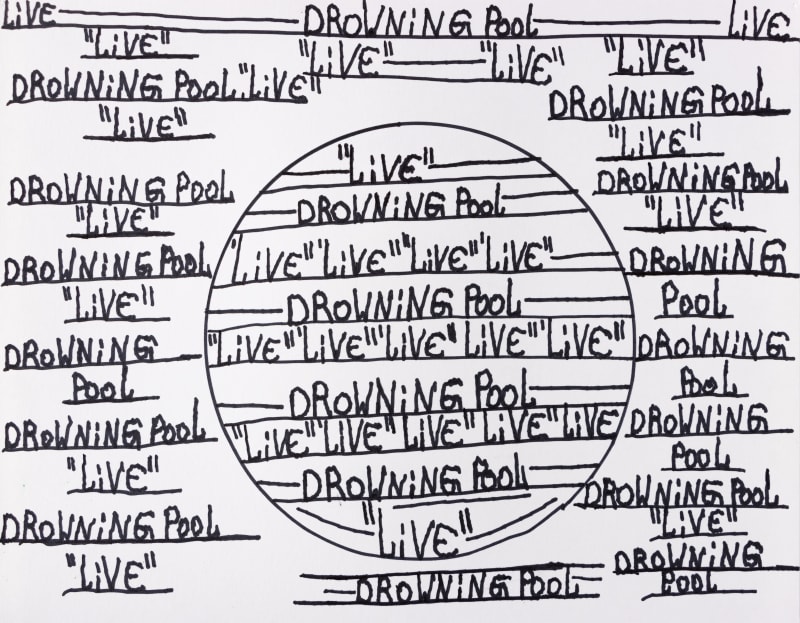 LiVE DROWNiNG Pool LiVE
"LiVE"
DROWNiNG Pool "LiVE"
"LiVE"
"LiVE" "LiVE"
"LiVE"
DROWNiNG Pool
"LiVE"
DROWNiNG Pool
"LiVE"
DROWNiNG
Pool
DROWNiNG
Pool
DROWNiNG
Pool
DROWNiNG Pool
"LiVE"
DROWNiNG
Pool
DROWNiNG Pool
"LiVE"
DROWNiNG Pool
"LiVE"
DROWNiNG
Pool
DROWNiNG Pool
"LiVE"
DROWNiNG Pool
"LiVE"
"LiVE"
DROWNiNG Pool
'LiVE" 'LiVE" "LiVE" 'LiVE"
DROWNiNG Pool
"LiVE" "LiVE" "LiVE" "LiVE" "LiVE"
DROWNiNG Pool
"LiVE" "LiVE" "LiVE" "LiVE" LiVE
DROWNiNG Pool
"LiVE"
DROWNiNG Pool